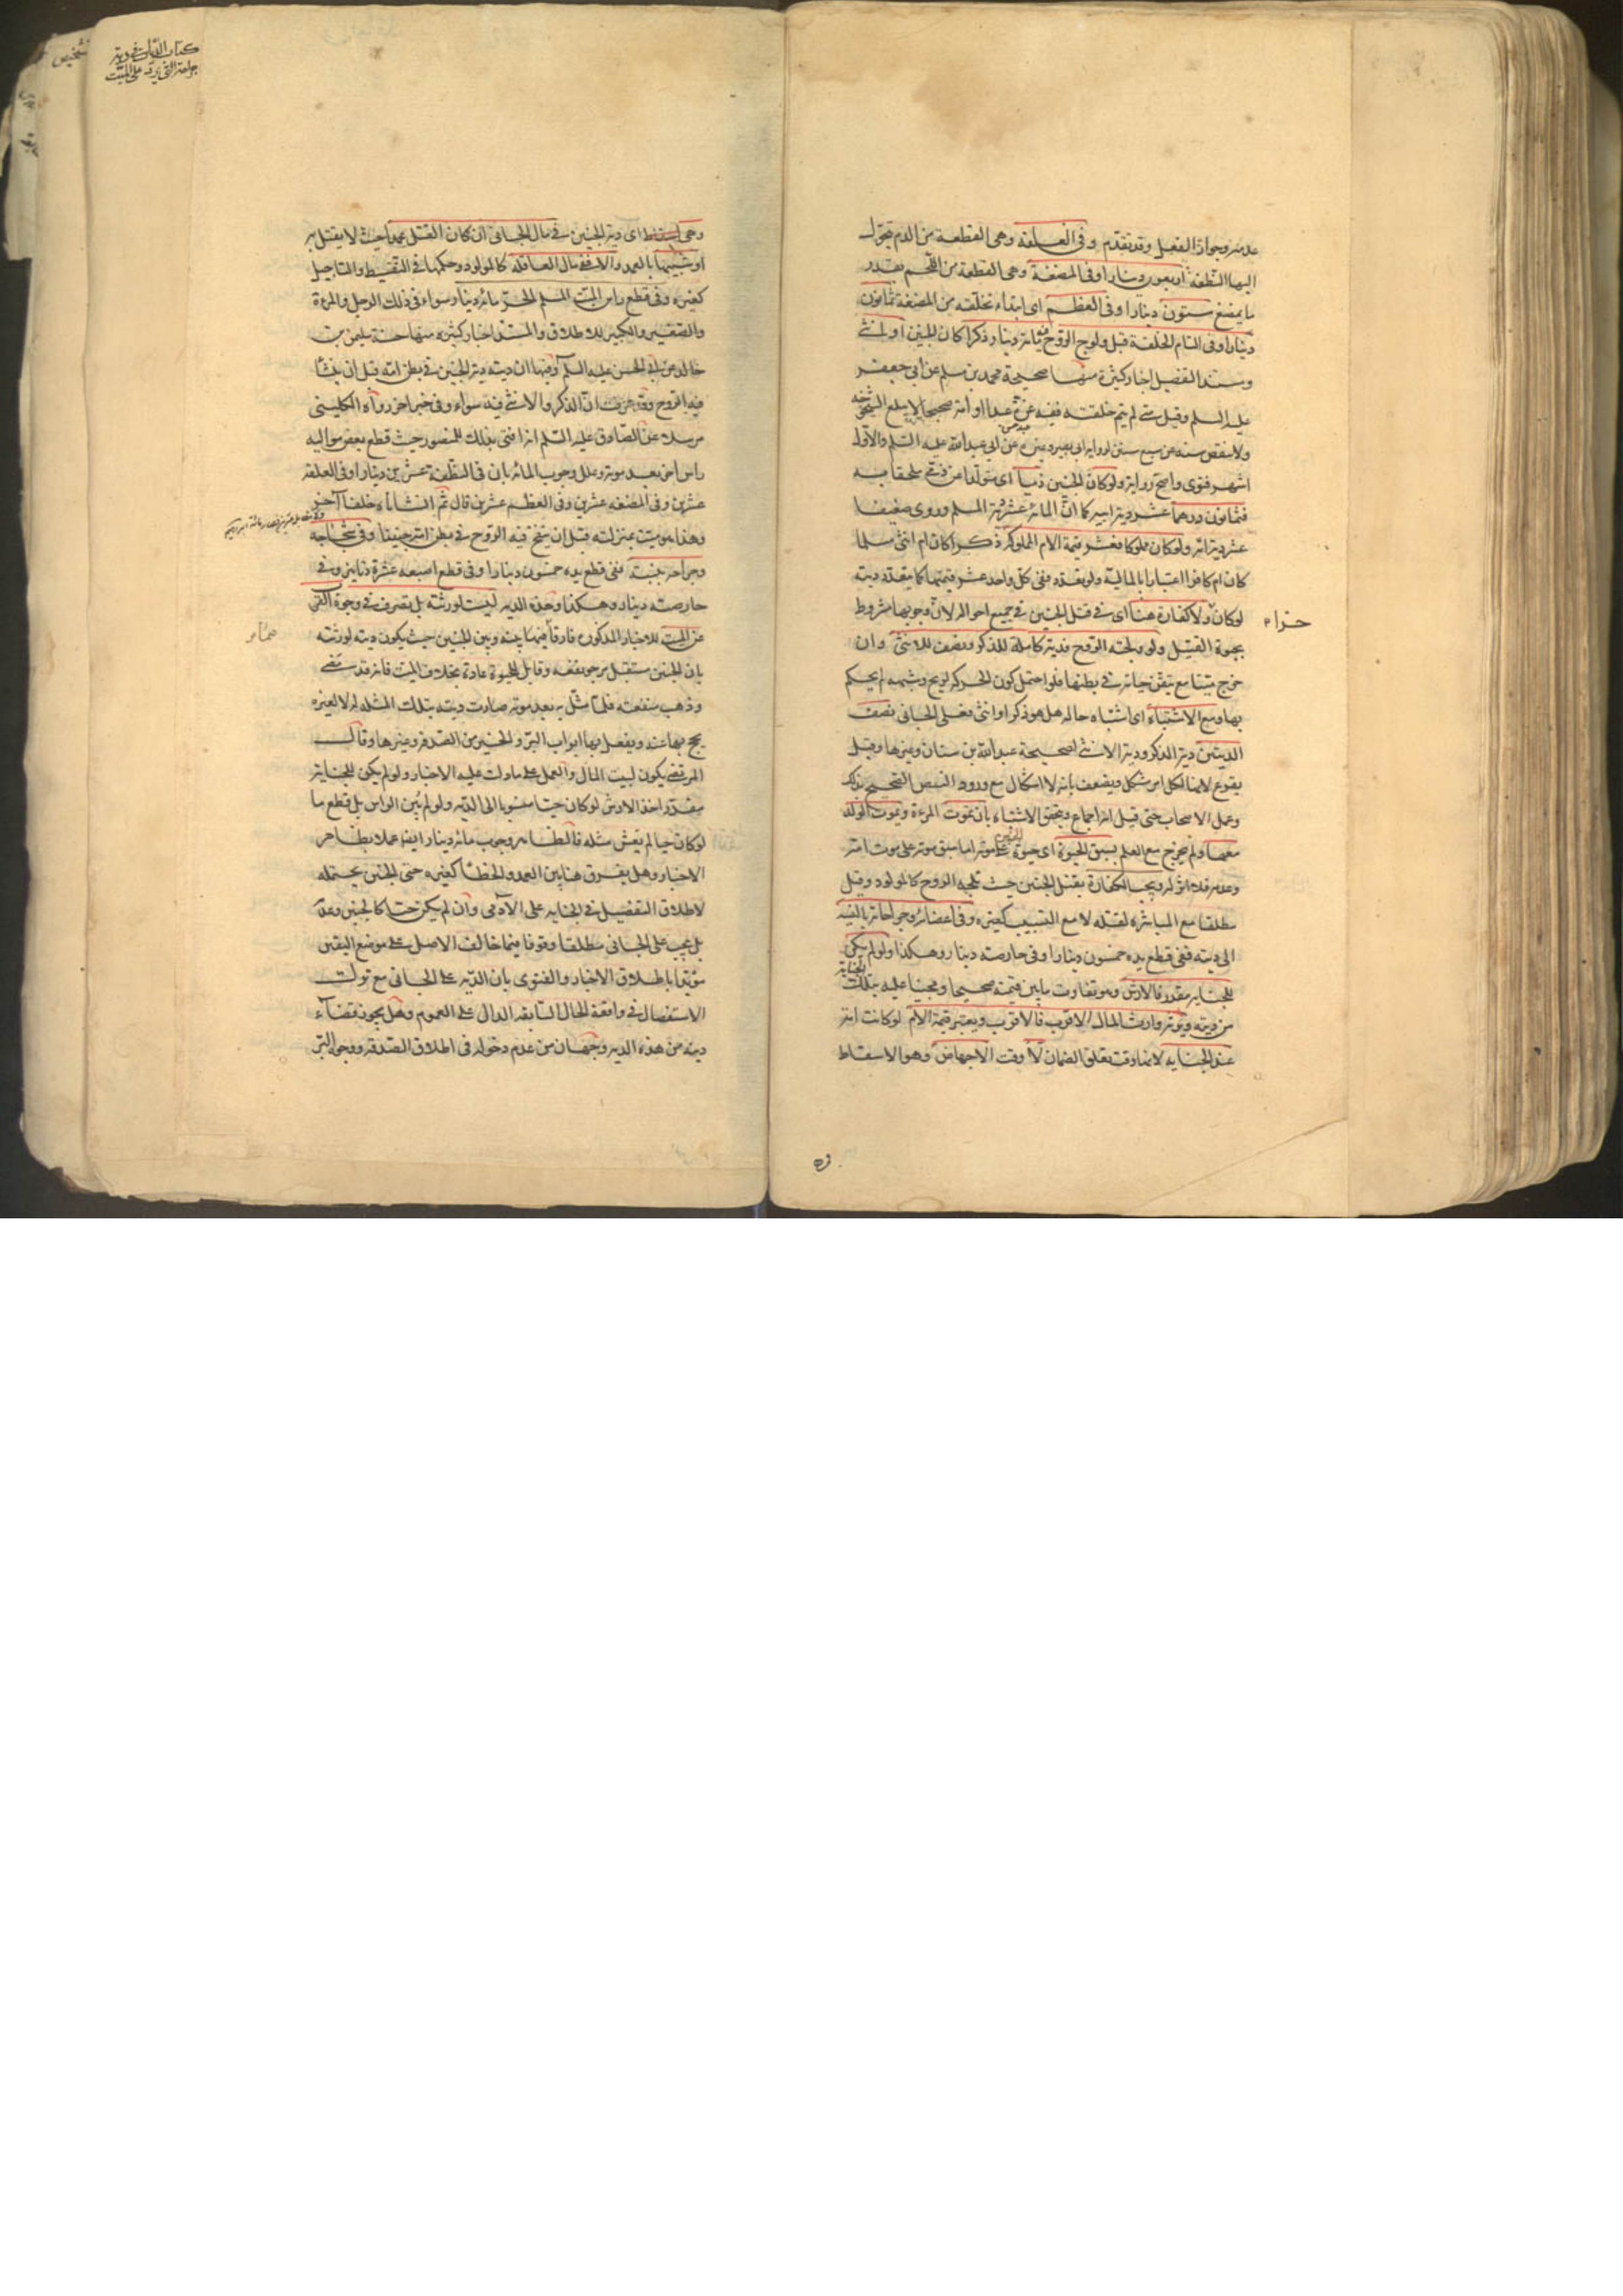 عدمه وجواز الفعل وقد تقدم وفى العلقة وهى القطعة من الدم تتحول
اليها النطفة اربعون دينارا وفى المضغة وهى القطعة من اللحم بقدر
ما يمضغ ستون دينارا وفى العظم اى ابتداء تخلقه من المضغة ثمانون
دينارا وفى التام الخلقة قبل ولوج الروح فيه مائة دينار ذكرا كان الجنين او انثى
ومستند التفصيل اخبار كثيرة منها صحيحة محمد بن مسلم عن ابى جعفر
عليه السلم وقيل متى لم يتم خلقته ففيه غرة عبدا او امة صحيحا لا يبلغ الشيخوخة
ولا ينقص سنه عن سبع سنين لرواية ابى بصير وغيره عن ابى عبد الله عليه السلم والاول
اشهر فتوى واصح رواية ولو كان الجنين ذميا اى متولدا عن ذمى ملحقا به
فثمانون درهما عشر دية ابيه كما ان المائة عشر دية المسلم وروى ضعيفا
عشر دية امه ولو كان مملوكا فعشر قيمة الام المملوكة ذكرا كان ام انثى مسلما
كان ام كافرا اعتبارا بالمالية ولو تعدد ففى كل واحد عشر قيمتها كما يتعدد ديته
لو كان حرا ولا كفارة هنا اى فى قتل الجنين فى جميع احواله لان وجوبها مشروط
بحيوة القتيل ولو ولجته الروح فدية كاملة للذكر ونصف للانثى وان
خرج ميتا مع تيقن حياته فى بطنها فلو احتمل كون الحركة لريح وشبهه لم يحكم
بها ومع الاشتباه اى اشتباه حاله هل هو ذكر او انثى فعلى الجانى نصف
الديتين دية الذكر ودية الانثى لصحيحة عبد الله بن سنان وغيرها وقيل
يقرع لانها لكل امر مشكل ويضعف بانه لا اشكال مع ورود النص الصحيح بذلك
وعمل الاصحاب حتى قيل انه اجماع ويتحقق الاشتباه بان تموت المرءة ويموت الولد
معها ولم يخرج مع العلم بسبق الحيوة اى حيوة الجنين على موته اما سبق موته على موت امه
وعدمه فلا اثر له ويجب الكفارة بقتل الجنين حيث تلجه الروح كالمولود وقيل
مطلقا مع المباشرة لقتله لا مع التسبيب كغيره وفى اعضائه وجراحاته بالنسبة
الى ديته ففى قطع يده خمسون دينارا وفى حارصته دينار وهكذا ولو لم يكن
للجناية مقدر فالارش وهو تفاوت ما بين قيمته صحيحا ومجنيا عليه بتلك الجناية
من ديته ويرثه وارث المال الاقرب فالاقرب ويعتبر قيمة الام لو كانت امة
عند الجناية لانها وقت تعلق الضمان لا وقت الاجهاض وهو الاسقاط
كتاب الديات فى دية
وهى اى دية الجنين فى مال الجانى ان كان القتل عمدا حيث لا يقتل به
او شبيها بالعمد والا ففى مال العاقلة كالمولود وحكمها فى التقسيط والتاجيل
كغيره وفى قطع راس الميت المسلم الحر مائة دينار سواء فى ذلك الرجل والمرءة
والصغير والكبير للاطلاق والمستند اخبار كثيرة منها حسنة سليمن بن
خالد عن ابى الحسن عليه السلم وفيها ان ديته دية الجنين فى بطن امه قبل ان ينشأ
فيه الروح وقد عرفت ان الذكر والانثى فيه سواء وفى خبر اخر رواه الكلينى
مرسلا عن الصادق عليه السلم انه افتى بذلك للمنصور حيث قطع بعض مواليه
راس اخر بعد موته وعلل وجوب المائة بان فى النطفة عشرين دينارا وفى العلقة
عشرين وفى المضغة عشرين وفى العظم عشرين قال ثم انشأناه خلقا آخر
وهذا هو ميت بمنزلته قبل ان ينفخ فيه الروح فى بطن امه جنينا وفى شجاجه
وجراحه بنسبته ففى قطع يده خمسون دينارا وفى قطع اصبعه عشرة دنانير وفى
حارصته دينار وهكذا وهذه الدية ليست لورثته بل تصرف فى وجوه القرب
عن الميت للاخبار المذكورة فارقا فيها بينه وبين الجنين حيث يكون ديته لورثته
بان الجنين مستقبل مرجو نفعه وقابل للحيوة عادة بخلاف الميت فانه قد مضى
وذهب منفعته فلما مثل به بعد موته صارت ديته بتلك المثلة له لا لغيره
يحج بها عنه ويفعل بها ابواب البر والخير من الصدقة وغيرها وقال
المرتضى يكون لبيت المال والعمل على ما دلت عليه الاخبار ولو لم يكن للجناية
مقدر اخذ الارش لو كان حيا منسوبا الى الدية ولو لم يبن الراس بل قطع ما
لو كان حيا لم يعش مثله فالظاهر وجوب مائة دينار ايضا عملا بظاهر
الاخبار وهل يفرق هنا بين العمد والخطأ كغيره حتى الجنين يحتمله
لاطلاق التفصيل فى الجناية على الآدمى وان لم يكن حيا كالجنين وعدمه
بل يجب على الجانى مطلقا وقوفا فيما خالف الاصل على موضع اليقين
مؤيدا باطلاق الاخبار والفتوى بان الدية على الجانى مع ترك
الاستفصال فى واقعة الحال السابقة الدال على العموم وهل يجوز قضاء
دينه من هذه الدية وجهان من عدم دخوله فى اطلاق الصدقة ووجوه البر